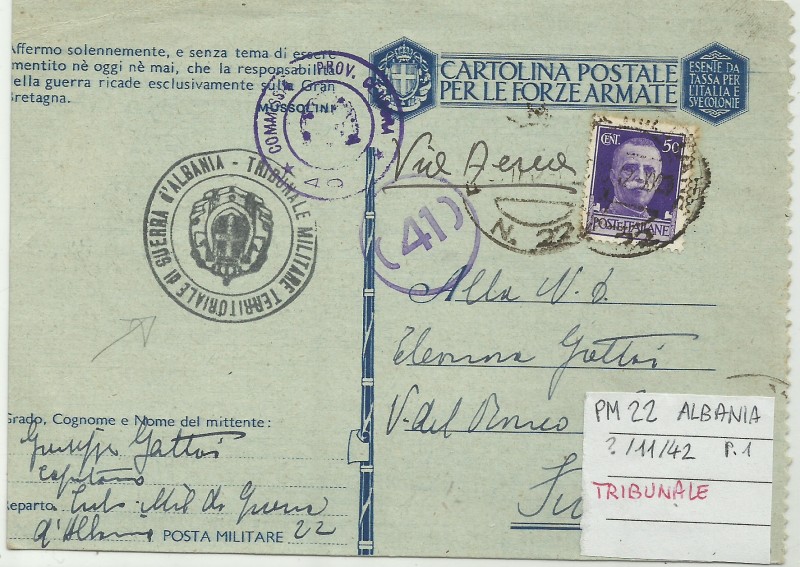 Affermo solennemente, e senza tema di essere
smentito nè oggi nè mai, che la responsabilità
della guerra ricade esclusivamente sulla Gran
Bretagna.
MUSSOLINI
COMMISS. PROV. CENSURA
CARTOLINA POSTALE
PER LE FORZE ARMATE
ESENTE DA
TASSA PER
L'ITALIA E
SVE COLONIE
Via Aerea
CENT. 50
POSTE ITALIANE
N. 22
22
(41)
TRIBUNALE MILITARE TERRITORIALE di GUERRA d'ALBANIA -
Alla N. D.
Eleonora Gattai
V. del Romeo
PM 22 ALBANIA
?/11/42 P.1
TRIBUNALE
Grado, Cognome e Nome del mittente:
Giuseppe Gattai
Capitano
Reparto Trib. Mil. di Guerra
d'Albania POSTA MILITARE 22